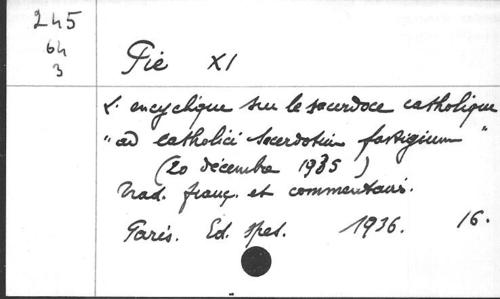 245
64
3
Pie XI
L'encyclique sur le sacerdoce catholique
"ad catholici sacerdotii fastigium"
(20 décembre 1935)
Trad. franç. et commentaire.
Paris. Ed. spes. 1936. 16.